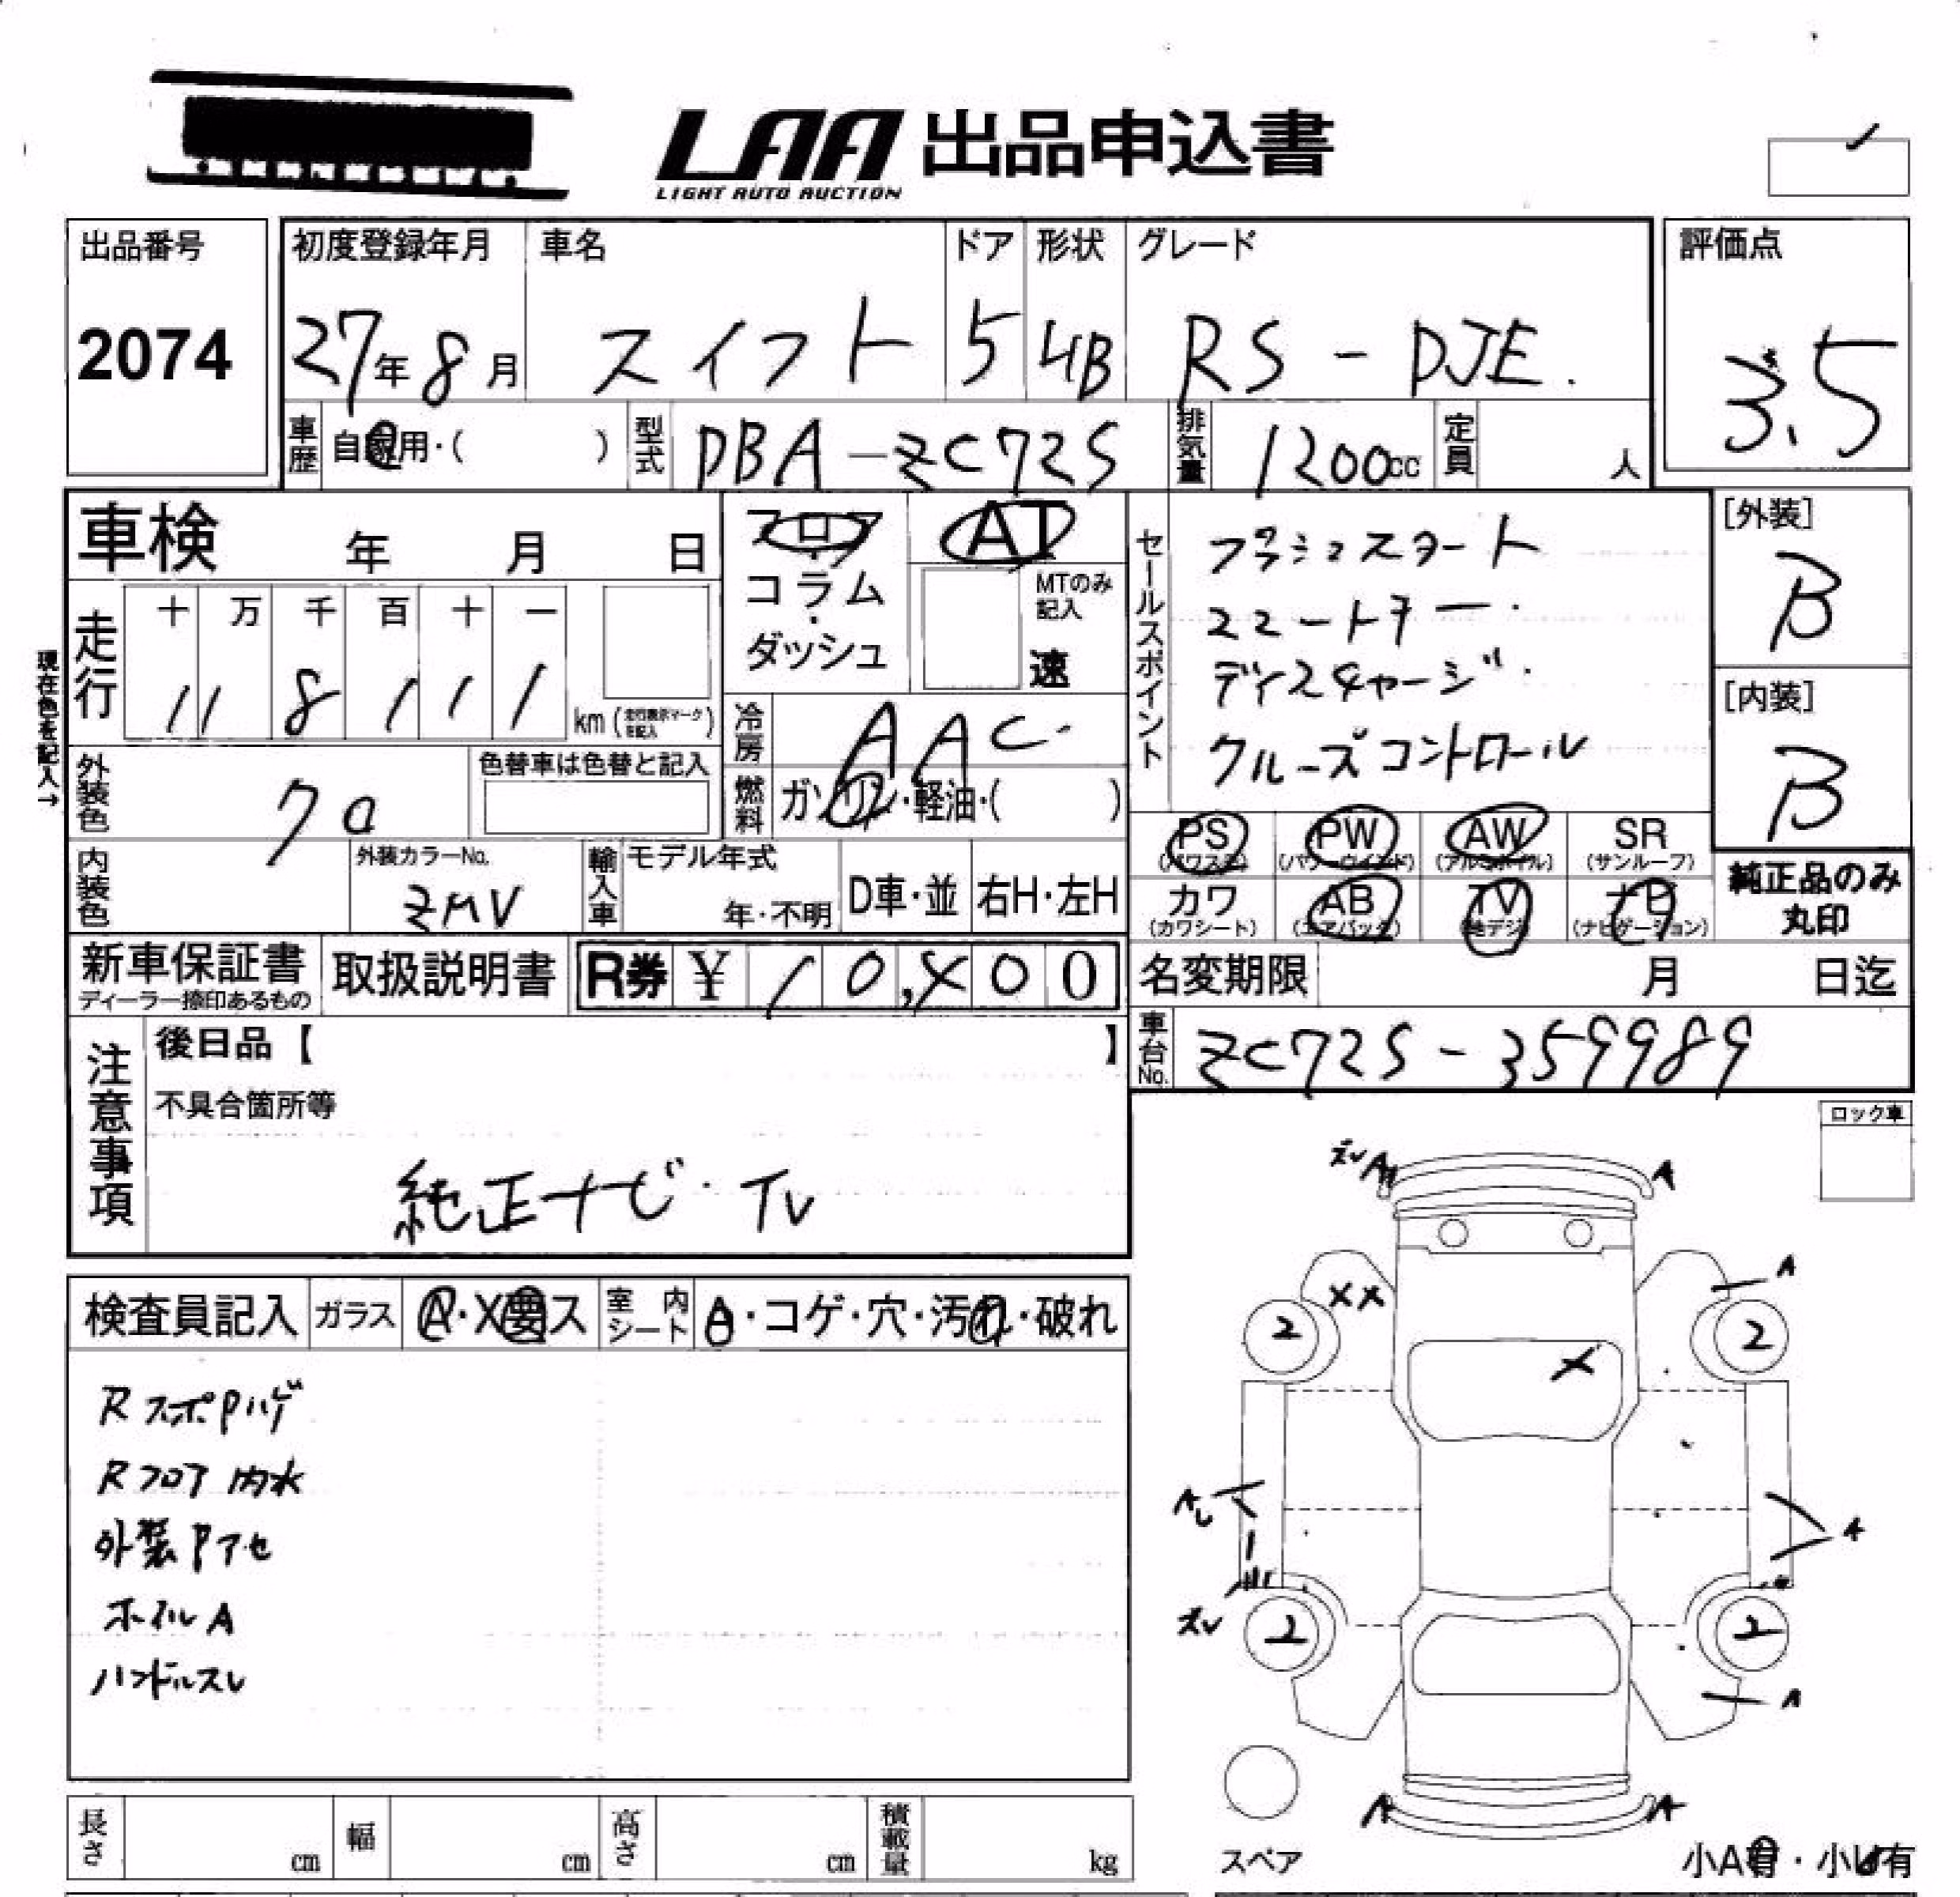 LAA 出品申込書
LIGHT AUTO AUCTION
出品番号 初度登録年月 車名 ドア 形状 グレード 評価点
2074 27年8月 スイフト 5 HB RS-DJE. 3.5
車歴 自家用・( ) 型式 DBA-ZC72S 排気量 1200cc 定員 人
車検 年 月 日
フロア・コラム・ダッシュ
AT
MTのみ記入 速
走行 十 万 千 百 十 一
11 8 1 1 1 km (走行表示マークを記入)
現在色を記入→
外装色 クロ 色替車は色替と記入
冷房 AAC
燃料 ガソリン・軽油・( )
内装色 外装カラーNo. ZMV
輸入車 モデル年式 年・不明 D車・並 右H・左H
セールスポイント
プッシュスタート
スマートキー.
ディスチャージ.
クルーズコントロール
[外装] B
[内装] B
PS (パワステ) PW (パワーウインド) AW (アルミホイル) SR (サンルーフ)
カワ (カワシート) AB (エアバック) TV (地デジ) ナビ (ナビゲーション)
純正品のみ丸印
新車保証書 ディーラー捺印あるもの 取扱説明書 R券 ¥ 10,
名変期限 月 日迄
車台No. ZC72S-359989
注意事項
後日品【 】
不具合箇所等
純正ナビ・TV
ロック車
検査員記入 ガラス A・X要ス 室内シート A・コゲ・穴・汚れ・破れ
RスポPハゲ
Rフロア内水
外装Pアセ
ホイルA
ハンドルスレ
ズレ A A
XX A
2 2
X
AU A
ズレ
2 2
A
A A
スペア
小A有・小U有
長さ cm 幅 cm 高さ cm 積載量 kg